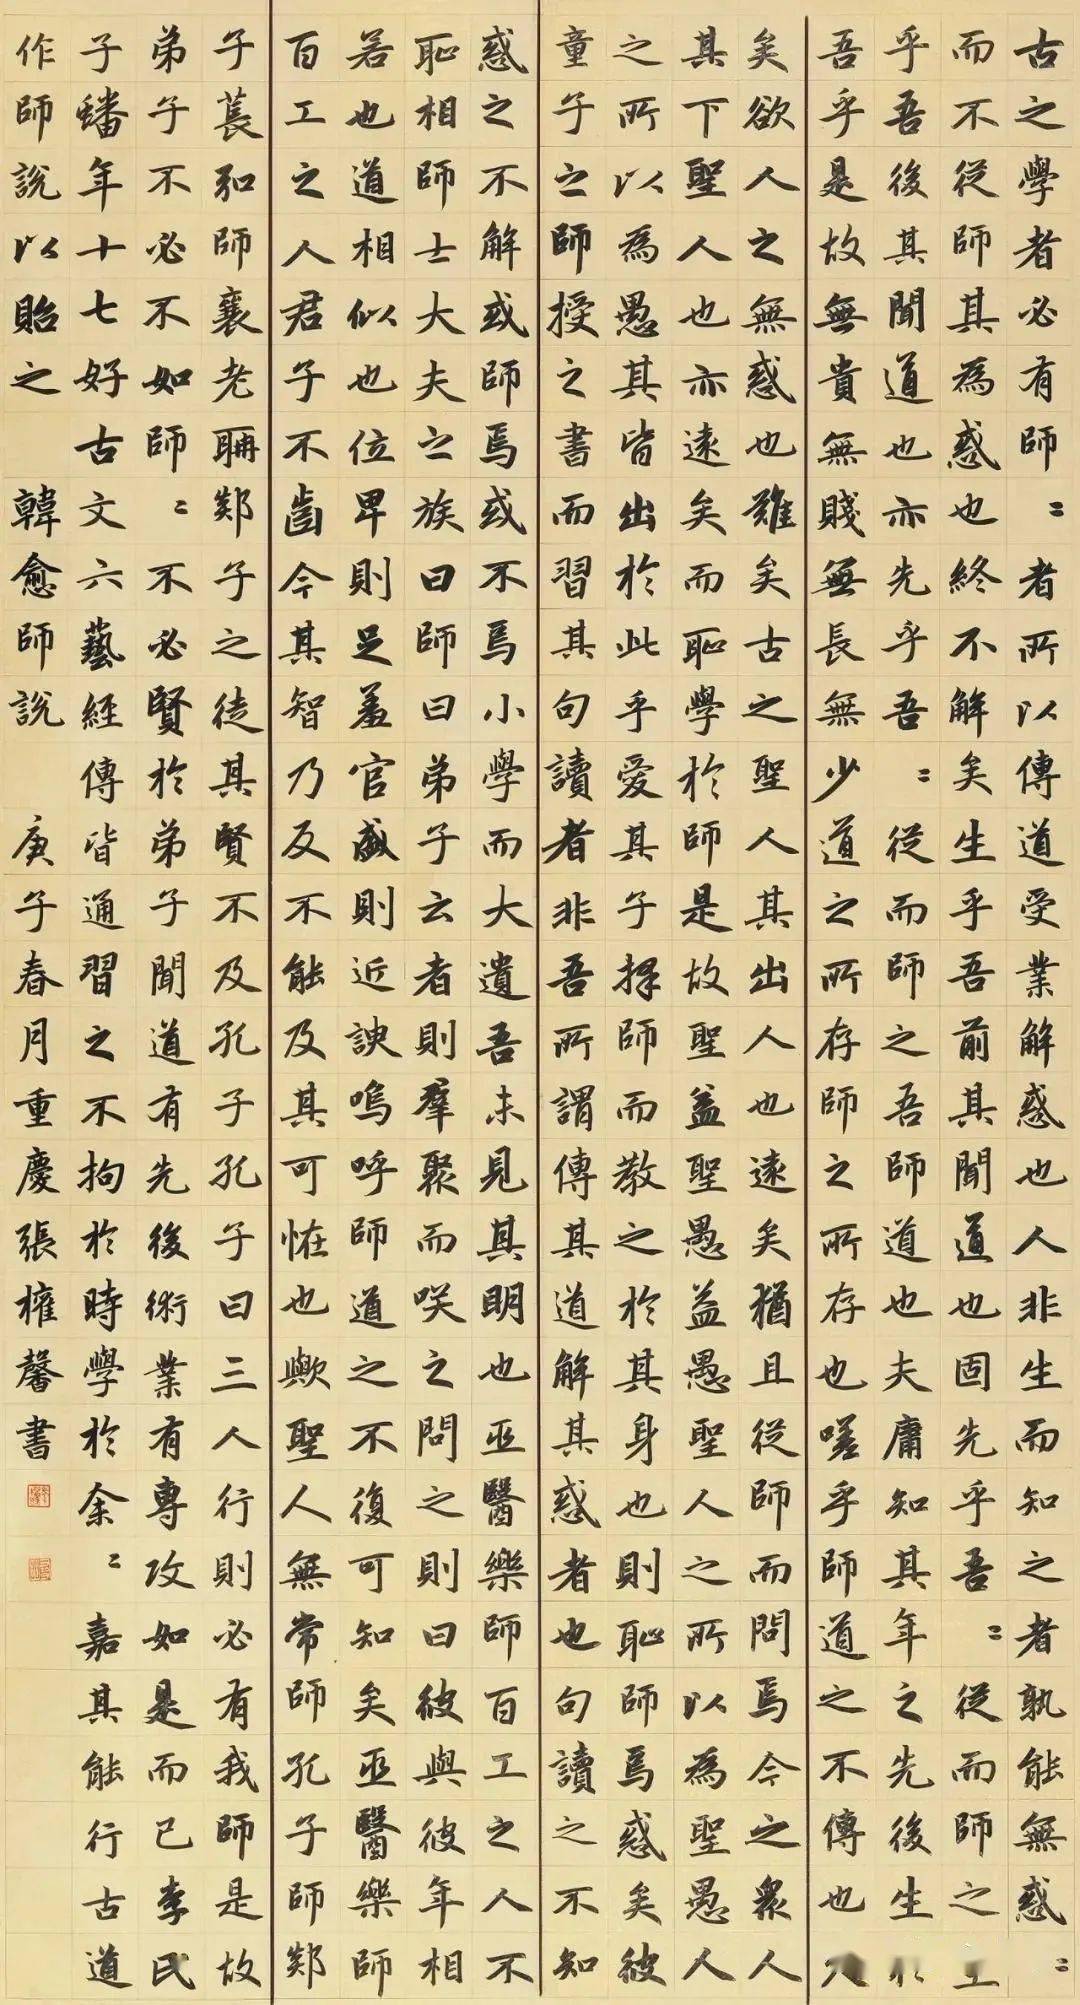 古之學者必有師〻者所以傳道受業解惑也人非生而知之者孰能無惑〻
而不從師其為惑也終不解矣生乎吾前其聞道也固先乎吾〻從而師之生
乎吾後其聞道也亦先乎吾〻從而師之吾師道也夫庸知其年之先後生於
吾乎是故無貴無賤無長無少道之所存師之所存也嗟乎師道之不傳也久
矣欲人之無惑也難矣古之聖人其出人也遠矣猶且從師而問焉今之眾人
其下聖人也亦遠矣而恥學於師是故聖益聖愚益愚聖人之所以為聖愚人
之所以為愚其皆出於此乎愛其子擇師而教之於其身也則恥師焉惑矣彼
童子之師授之書而習其句讀者非吾所謂傳其道解其惑者也句讀之不知
惑之不解或師焉或不焉小學而大遺吾未見其明也巫醫樂師百工之人不
恥相師士大夫之族曰師曰弟子云者則羣聚而咲之問之則曰彼與彼年相
若也道相似也位卑則足羞官盛則近諛嗚呼師道之不復可知矣巫醫樂師
百工之人君子不齒今其智乃反不能及其可恠也歟聖人無常師孔子師郯
子萇弘師襄老聃郯子之徒其賢不及孔子孔子曰三人行則必有我師是故
弟子不必不如師〻不必賢於弟子聞道有先後術業有專攻如是而已李氏
子蟠年十七好古文六藝經傳皆通習之不拘於時學於余〻嘉其能行古道
作師說以貽之 韓愈師說 庚子春月重慶張擁馨書